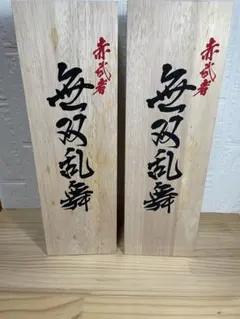 赤武者
無双乱舞
赤武者
無双乱舞